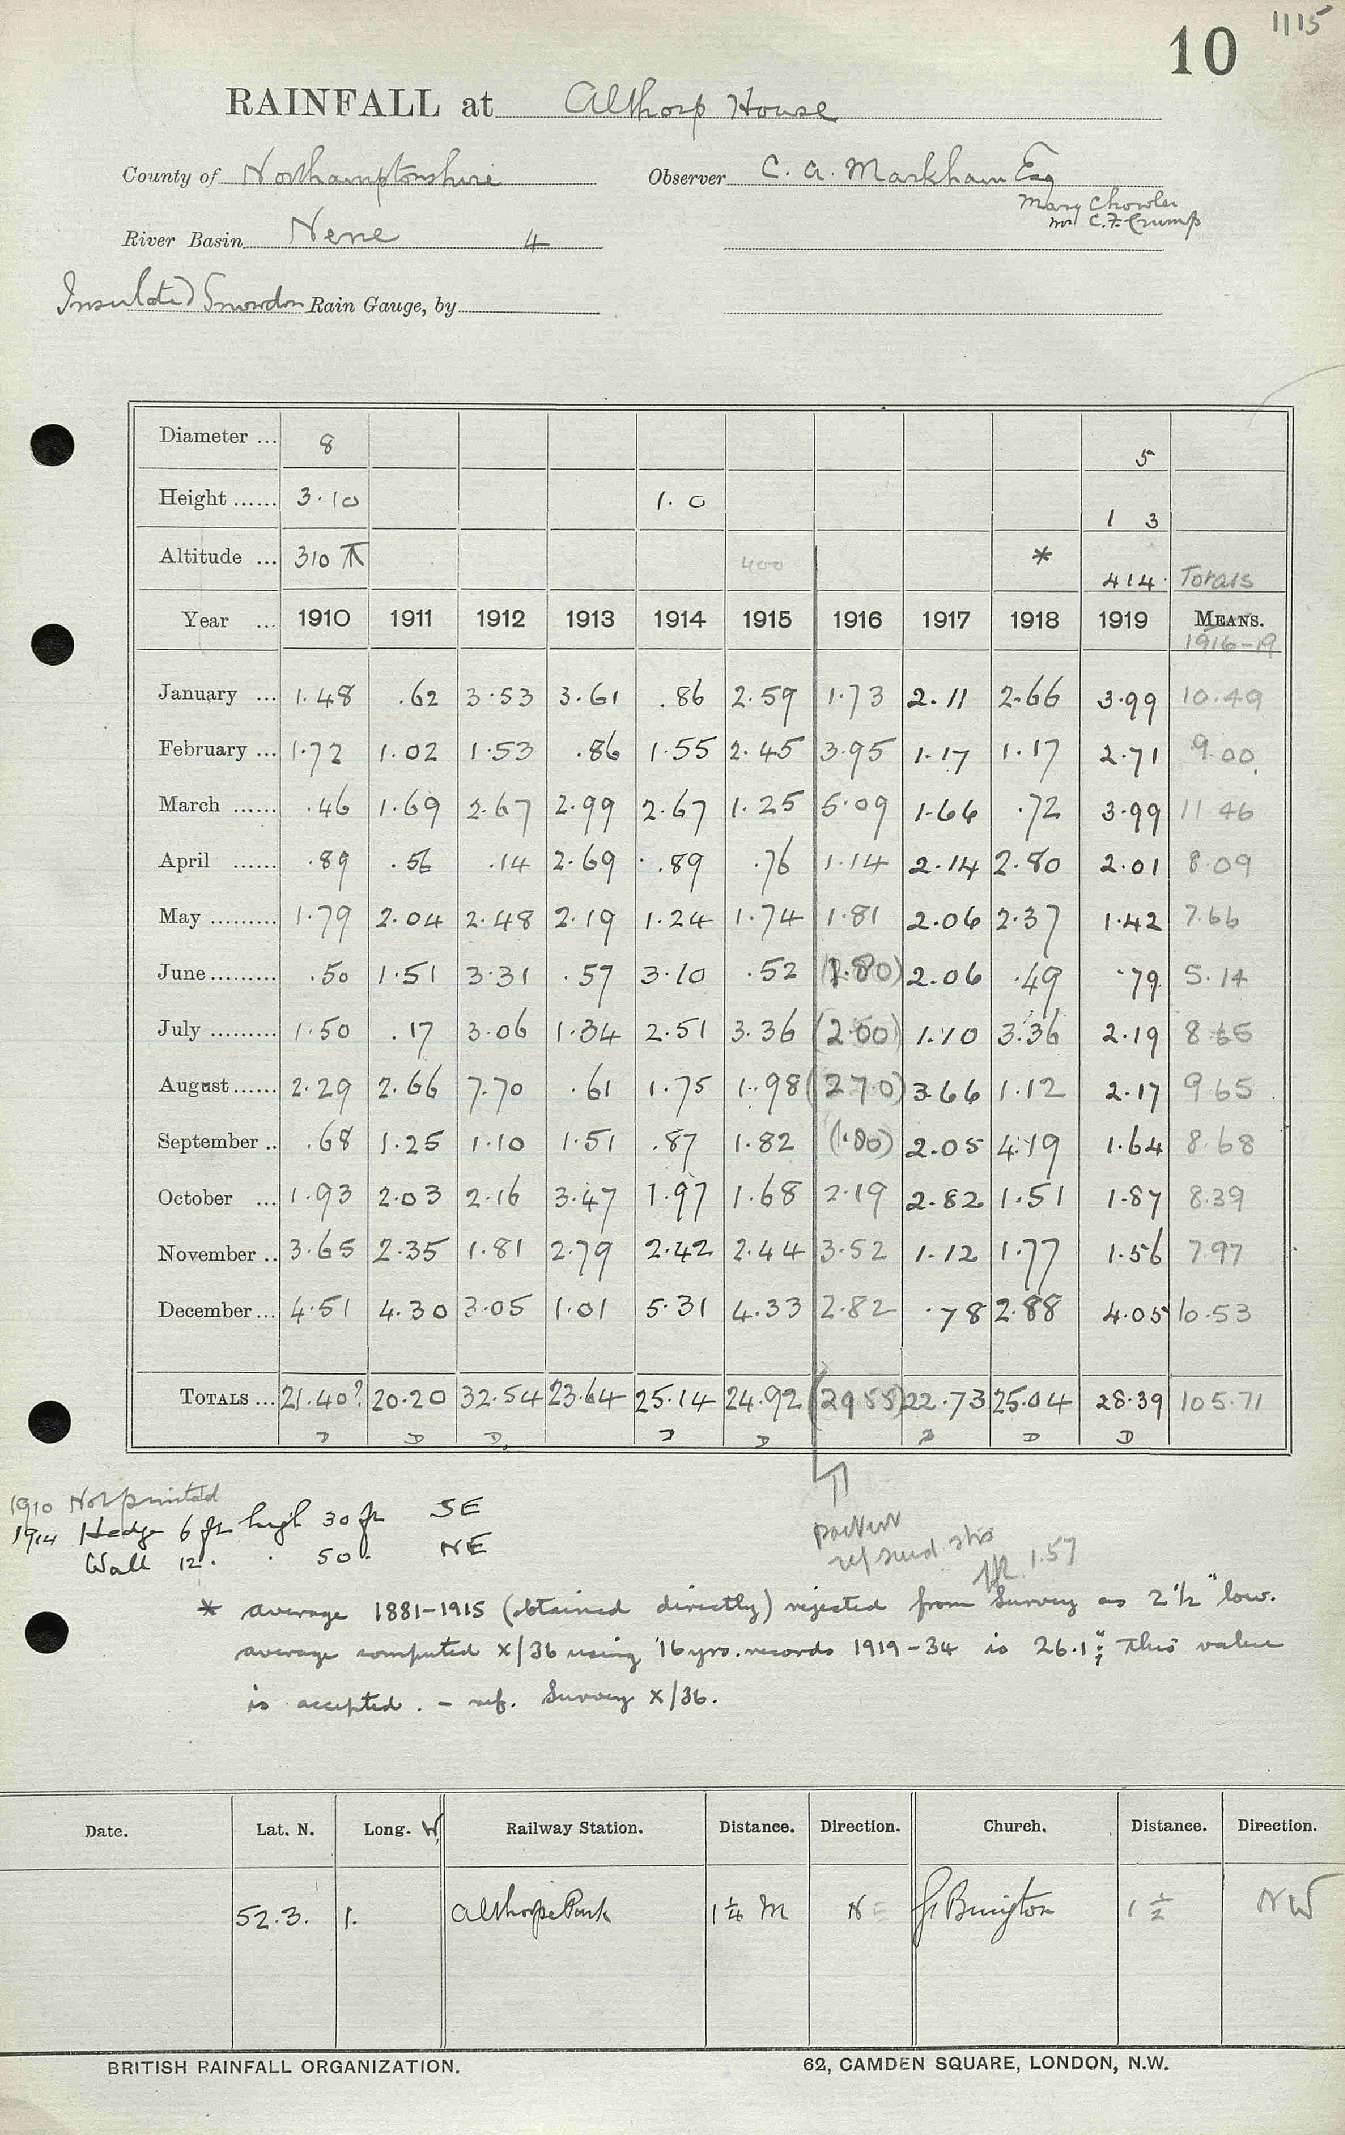 1115
10
RAINFALL at Althorp House
County of Northamptonshire Observer C. A. Markham Esq
Mary Chowler
Mr C. F. Crump
River Basin Nene 4
Insulated Snowdon Rain Gauge, by
Diameter ... 8 5
Height ...... 3.10 1.0 1 3
Altitude ... 310 400 * 414 Totals
Year ... 1910 1911 1912 1913 1914 1915 1916 1917 1918 1919 MEANS.
1916-19
January ... 1.48 .62 3.53 3.61 .86 2.59 1.73 2.11 2.66 3.99 10.49
February ... 1.72 1.02 1.53 .86 1.55 2.45 3.95 1.17 1.17 2.71 9.00
March ...... .46 1.69 2.67 2.99 2.67 1.25 5.09 1.66 .72 3.99 11 46
April ...... .89 .56 .14 2.69 .89 .76 1.14 2.14 2.80 2.01 8.09
May ......... 1.79 2.04 2.48 2.19 1.24 1.74 1.81 2.06 2.37 1.42 7.66
June ......... .50 1.51 3.31 .57 3.10 .52 (1.80) 2.06 .49 .79 5.14
July ......... 1.50 .17 3.06 1.34 2.51 3.36 (2.00) 1.10 3.36 2.19 8.65
August ...... 2.29 2.66 7.70 .61 1.75 1.98 (2.70) 3.66 1.12 2.17 9 65
September .. .68 1.25 1.10 1.51 .87 1.82 (1.80) 2.05 4.19 1.64 8.68
October ... 1.93 2.03 2.16 3.47 1.97 1.68 2.19 2.82 1.51 1.87 8.39
November .. 3.65 2.35 1.81 2.79 2.42 2.44 3.52 1.12 1.77 1.56 7.97
December ... 4.51 4.30 3.05 1.01 5.31 4.33 2.82 .78 2.88 4.05 10.53
TOTALS ... 21.40? 20.20 32.54 23.64 25.14 24.92 (29 55) 22.73 25.04 28.39 105.71
D D D D D D D D
1910 Not printed
1914 Hedge 6 ft high 30 ft SE
Wall 12 . . 50 . NE
1.57
* average 1881-1915 (obtained directly) rejected from Survey as 2 1/2" low.
average computed X/36 using 16 yrs. records 1919-34 is 26.1"; this value
is accepted. - ref. Survey X/36.
Date. Lat. N. Long. W. Railway Station. Distance. Direction. Church. Distance. Direction.
52.3. 1. Althorpe Park 1 1/4 M NE Gt Brington 1 1/2 NW
BRITISH RAINFALL ORGANIZATION. 62, CAMDEN SQUARE, LONDON, N.W.